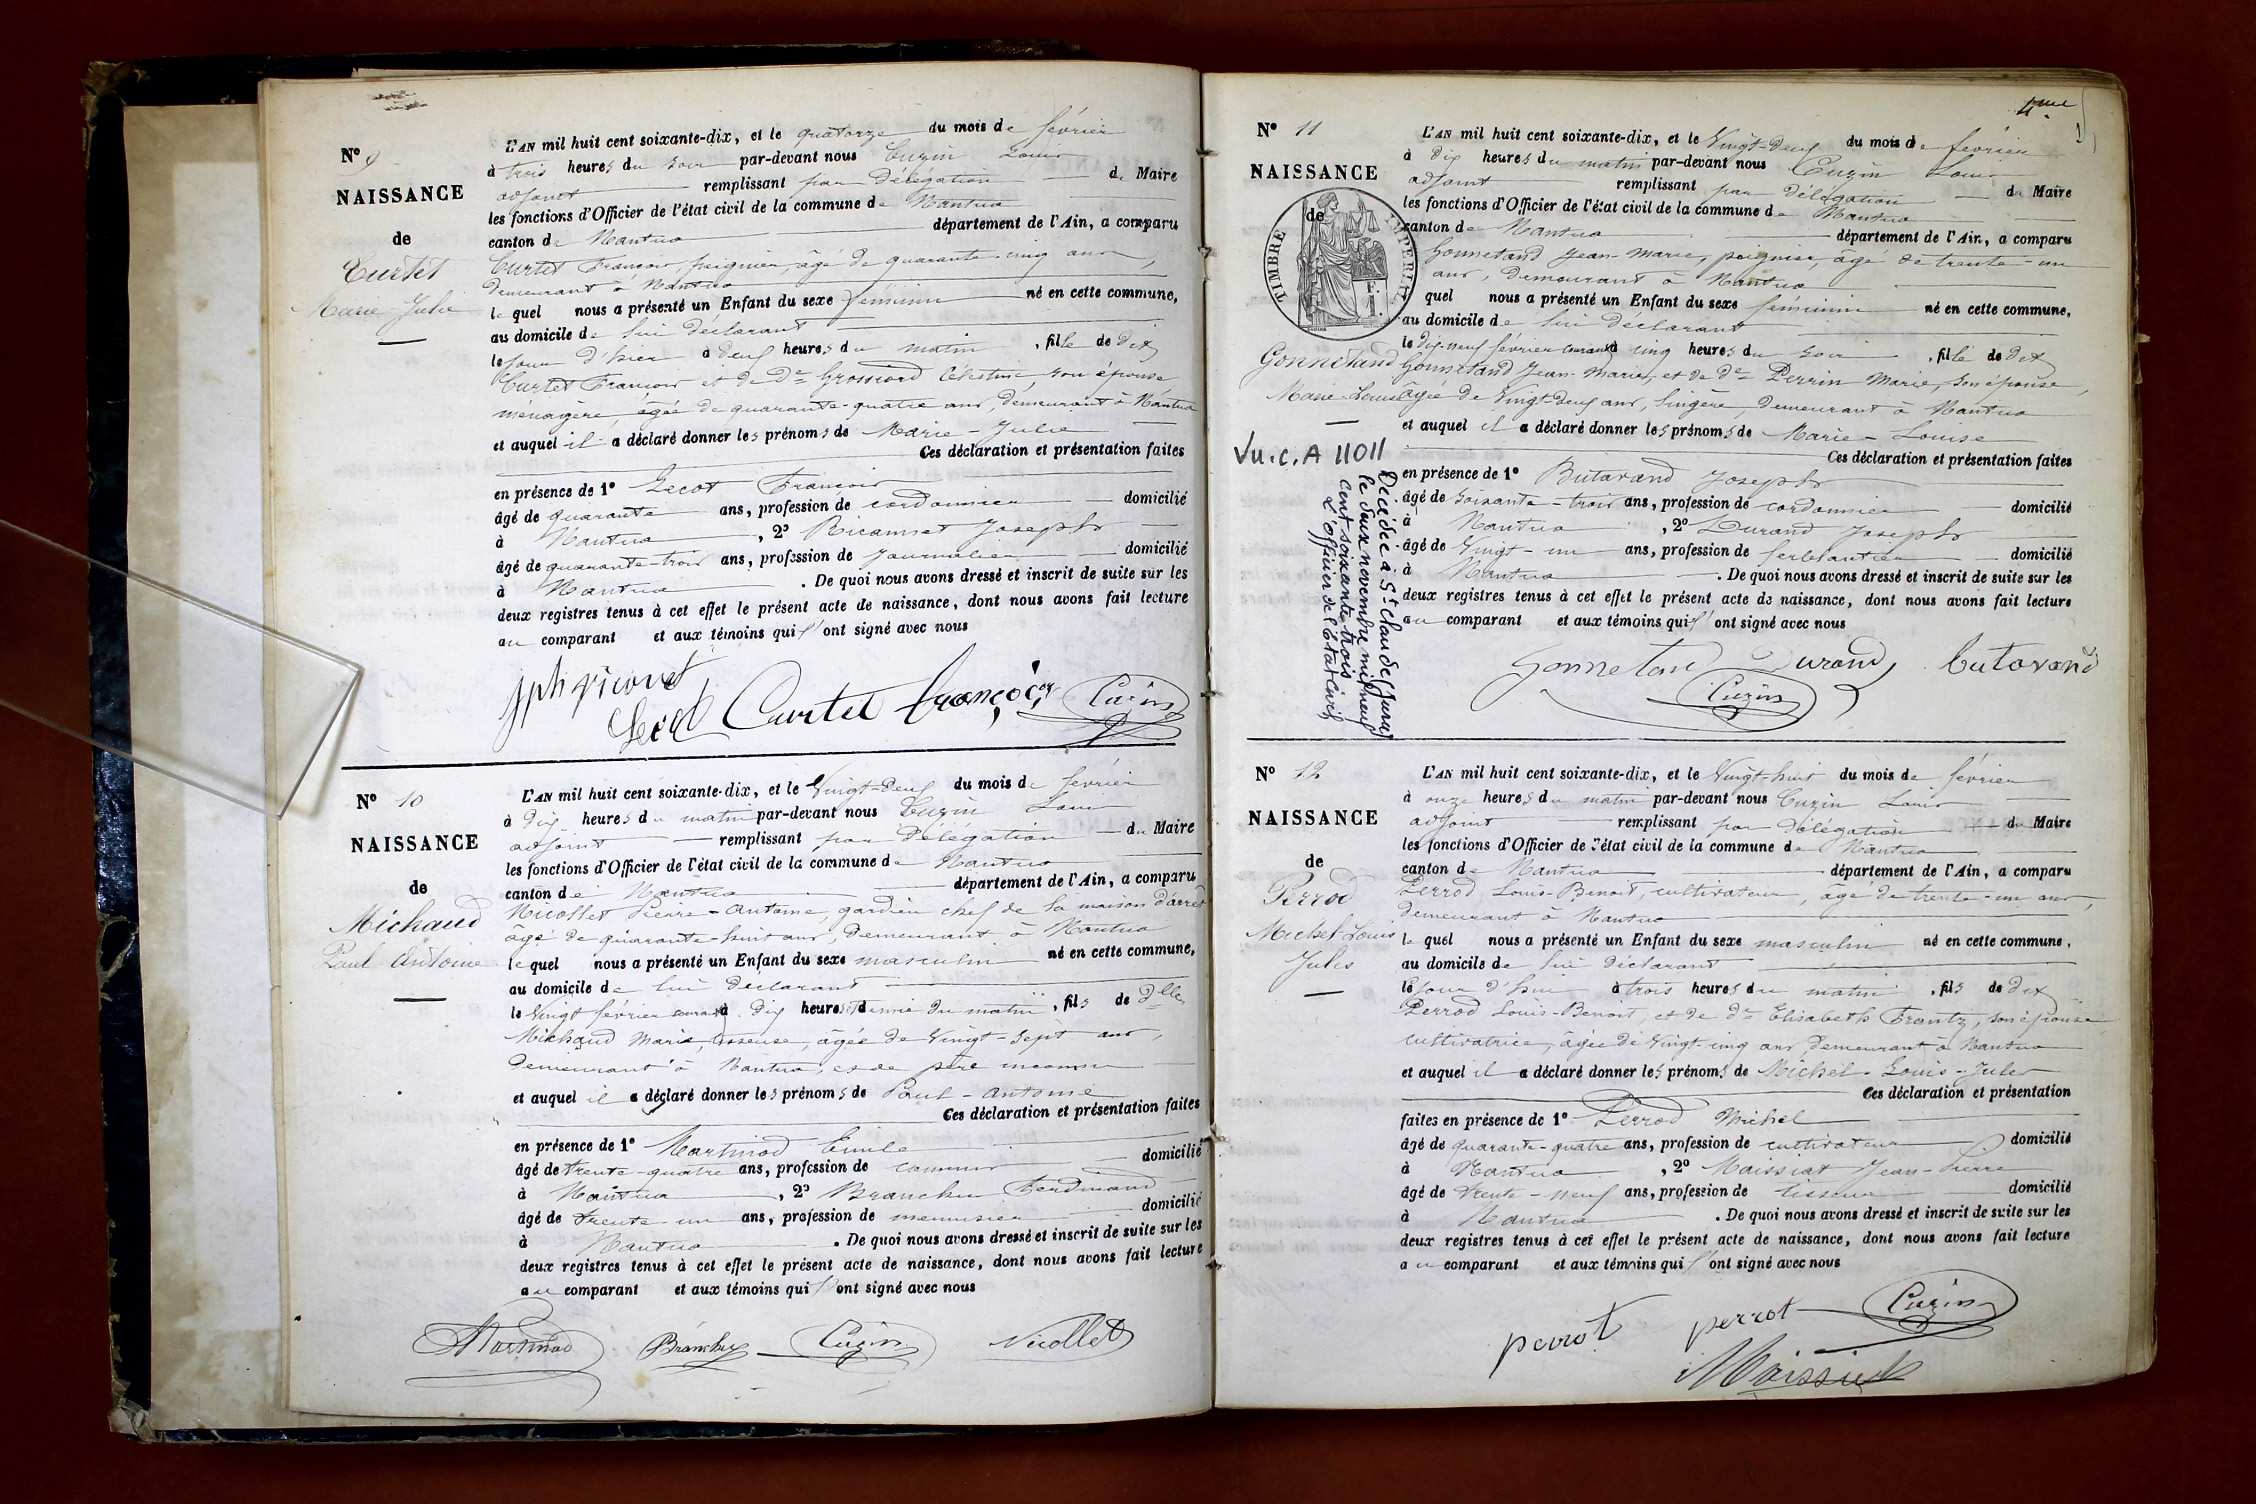 N° 9
NAISSANCE
de
Curtet
Marie-Julie
L'AN mil huit cent soixante-dix, et le quatorze du mois de février
à trois heures du soir par-devant nous Cuzin Louis
adjoint remplissant par Délégation du Maire
les fonctions d'Officier de l'état civil de la commune de Nantua
canton de Nantua département de l'Ain, a comparu
Curtet François, peignier, âgé de quarante-cinq ans,
demeurant à Nantua
le quel nous a présenté un Enfant du sexe féminin né en cette commune,
au domicile de lui déclarant
le jour d'hier à deux heures du matin, fille de dit
Curtet François et de De Grossiord Célestine, son épouse,
ménagère, âgée de quarante-quatre ans, demeurant à Nantua
et auquel il a déclaré donner les prénoms de Marie-Julie
Ces déclaration et présentation faites
en présence de 1° Lecot François
âgé de quarante ans, profession de cordonnier domicilié
à Nantua, 2° Joseph
âgé de quarante-trois ans, profession de Journalier domicilié
à Nantua. De quoi nous avons dressé et inscrit de suite sur les
deux registres tenus à cet effet le présent acte de naissance, dont nous avons fait lecture
au comparant et aux témoins qui l'ont signé avec nous
Curtet françois Cuzin
N° 10
NAISSANCE
de
Michaud
Paul Antoine
L'AN mil huit cent soixante-dix, et le Vingt-Deux du mois de février
à Dix heures du matin par-devant nous Cuzin Louis
adjoint remplissant par Délégation du Maire
les fonctions d'Officier de l'état civil de la commune de Nantua
canton de Nantua département de l'Ain, a comparu
Nicollet Pierre-Antoine, gardien chef de la maison d'arrêt
âgé de quarante-huit ans, Demeurant à Nantua
le quel nous a présenté un Enfant du sexe masculin né en cette commune,
au domicile de lui déclarant
le Vingt février courant à Dix heures et demie du matin, fils de Dlle
Michaud Marie, tisseuse, âgée de Vingt-sept ans,
Demeurant à Nantua, et de père inconnu
et auquel il a déclaré donner les prénoms de Paul-Antoine
Ces déclaration et présentation faites
en présence de 1° Martinod Emile
âgé de trente-quatre ans, profession de commis domicilié
à Nantua, 2° Branchu Ferdinand
âgé de trente un ans, profession de menuisier domicilié
à Nantua. De quoi nous avons dressé et inscrit de suite sur les
deux registres tenus à cet effet le présent acte de naissance, dont nous avons fait lecture
au comparant et aux témoins qui l'ont signé avec nous
Martinod Branchu Cuzin Nicollet
4me
N° 11
NAISSANCE
de
TIMBRE IMPERIAL
Gonnetand
Marie-Louise
Vu.c.A 11011
Décédée à St Claude (Jura)
le deux novembre mil neuf
cent soixante trois
L'officier de l'état civil
L'AN mil huit cent soixante-dix, et le Vingt-Deux du mois de février
à Dix heures du matin par-devant nous Cuzin Louis
adjoint remplissant par Délégation du Maire
les fonctions d'Officier de l'état civil de la commune de Nantua
canton de Nantua département de l'Ain, a comparu
Gonnetand Jean-Marie, peignier, âgé de trente-un
ans, Demeurant à Nantua
quel nous a présenté un Enfant du sexe féminin né en cette commune,
au domicile de lui Déclarant
le dix-neuf février courant à cinq heures du soir, fille de dit
Gonnetand Jean-Marie, et de De Perrin Marie, son épouse,
âgée de Vingt-Deux ans, lingère, demeurant à Nantua
et auquel il a déclaré donner les prénoms de Marie-Louise
Ces déclaration et présentation faites
en présence de 1° Butavand Joseph
âgé de soixante-trois ans, profession de cordonnier domicilié
à Nantua, 2° Durand Joseph
âgé de Vingt-un ans, profession de ferblantier domicilié
à Nantua. De quoi nous avons dressé et inscrit de suite sur les
deux registres tenus à cet effet le présent acte de naissance, dont nous avons fait lecture
au comparant et aux témoins qui l'ont signé avec nous
Gonnetand Durand butavand
Cuzin
N° 12
NAISSANCE
de
Perrod
Michel Louis
Jules
L'AN mil huit cent soixante-dix, et le Vingt-huit du mois de février
à onze heures du matin par-devant nous Cuzin Louis
adjoint remplissant par Délégation du Maire
les fonctions d'Officier de l'état civil de la commune de Nantua
canton de Nantua département de l'Ain, a comparu
Perrod Louis-Benoit, cultivateur, âgé de trente-un ans,
demeurant à Nantua
le quel nous a présenté un Enfant du sexe masculin né en cette commune,
au domicile de lui déclarant
le jour d'hui à trois heures du matin, fils de dit
Perrod Louis-Benoit, et de De Elisabeth Frantz, son épouse
cultivatrice, âgée de Vingt-cinq ans, Demeurant à Nantua
et auquel il a déclaré donner les prénoms de Michel-Louis-Jules
Ces déclaration et présentation
faites en présence de 1° Perrod Michel
âgé de quarante-quatre ans, profession de cultivateur domicilié
à Nantua, 2° Maissiat Jean-Pierre
âgé de trente-neuf ans, profession de tisseur domicilié
à Nantua. De quoi nous avons dressé et inscrit de suite sur les
deux registres tenus à cet effet le présent acte de naissance, dont nous avons fait lecture
au comparant et aux témoins qui l'ont signé avec nous
perrot perrot Cuzin
Maissiat